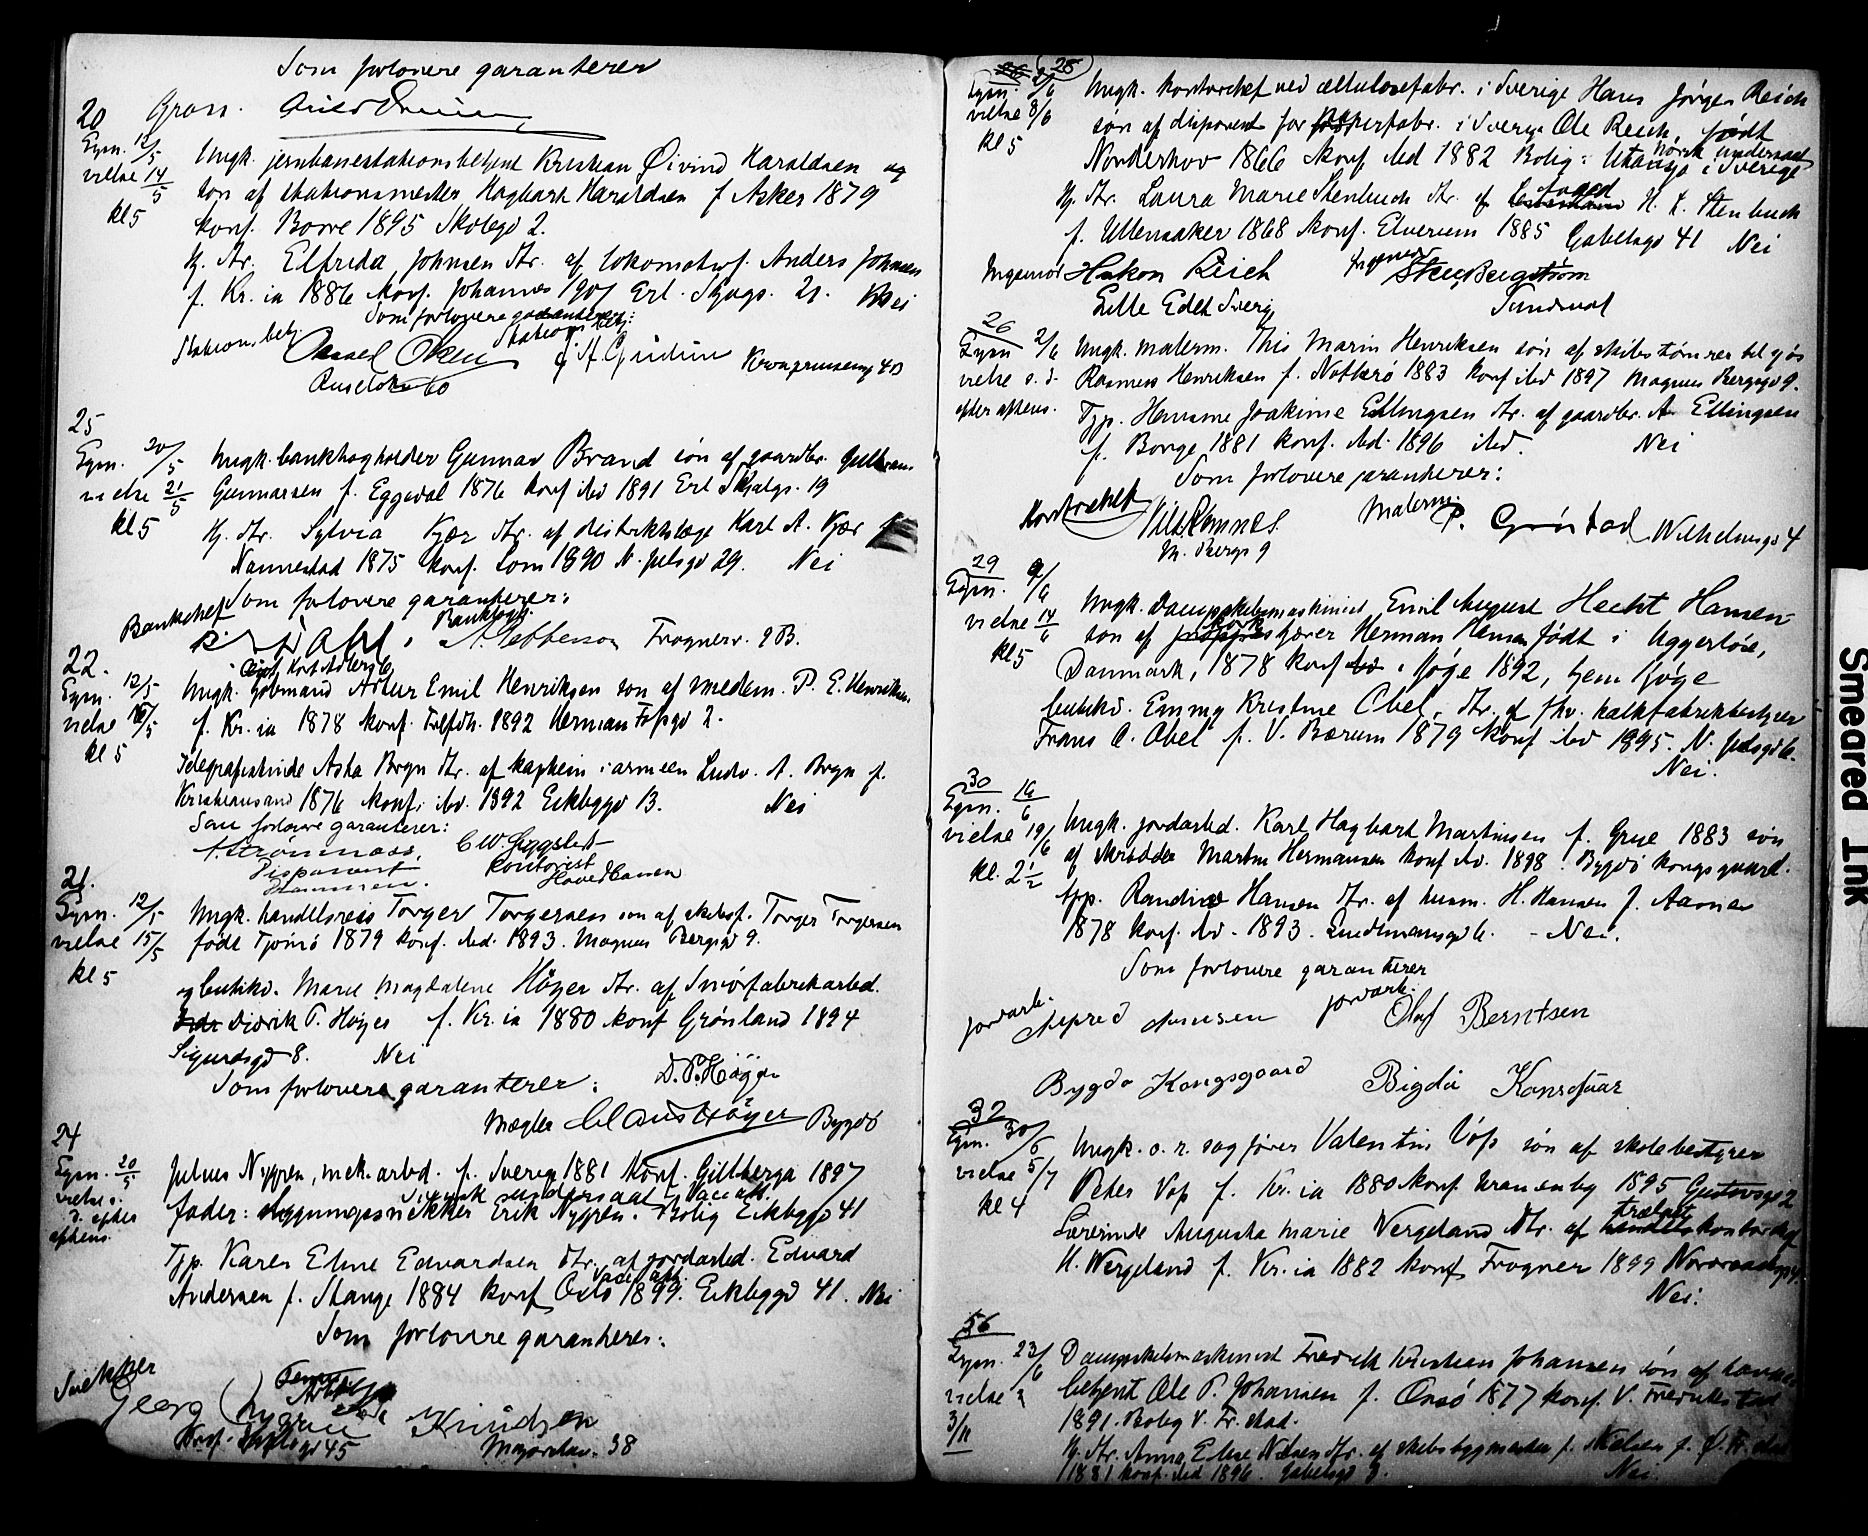 Som forlovere garanterer
20
Gross.
Lysn. 12/5
vielse 14/5
kl 5
Ungk. jernbanestationsbetjent Kristian Øivind Haraldsen og
søn af stationsmester Hagbart Haraldsen f Asker 1879
konf. Borre 1895 Skolegd 2.
Hj. dtr. Elfrida Johnsen dtr. af lokomotivf. Anders Johnsen
f. Kr.ia 1886 konf. Johannes 1901 Erl. Skjags. 21. Nei
Som forlovere garanterer:
Stationsbetj.
Kronprinseng 40
60
25
Lysn. 20/5
vielse 21/5
kl 5
Ungk. bankbogholder Gunnar Brand søn af gaardbr.
Gunnarsen f. Eggedal 1876 konf ibd 1891 Erl Skjalgs. 19
Hj. dtr. Sylvia Kjær dtr. af distriktslæge Karl A. Kjær f
Nannestad 1875 konf. Lom 1890 N. Juelsgd 29. Nei
Som forlovere garanterer:
Bankchef
Frognerv. 9B.
22.
Lysn. 12/5
vielse
kl 5
Ungk. Arthur Emil Henriksen søn af P. E. Henriksen
f. Kr.ia 1878 konf. 1892 Herman Fossgd 2.
Telegrafistinde Asta Bryn dtr. af kaptein i armeen Ludv. A. Bryn f.
Kristiansand 1876 konf. ibd. 1892 Eckbggd 13. Nei
Som forlovere garanterer:
A. Strømnæss, C. W. Siggstedt
Disponent Kontorist
Drammen.
21.
Lysn. 12/5
vielse 15/5
kl 5
Ungk. handelsreis Torger Torgersen søn af skibsf. Torger Torgersen
født Tjømø 1879 konf. ibd. 1893. Magnus Bergsgd 9.
og butikd. Marie Magdalene Höyer dtr. af Smørfabrikarbd.
Didrik P. Höyer f. Kr.ia 1880 konf Grønland 1894
Sigurdsgd 8. Nei
Som forlovere garanterer: D. P. Höyer
Mægler Claus Höyer Bygdö
24
Lysn. 20/5
vielse s.
d. efter
aftens.
Julius Nygren, mek. arbd. f. Sverig 1881 konf. Gillberga 1897
svensk undersaat Vacc att.
fader: bygningssnekker Erik Nygren. Bolig Eckbggd 41
Tjp. Karen Eline Edvardsen dtr. af jordarbd. Edvard
Vacc. att.
Andersen f. Stange 1884 konf Oslo 1899. Eckbggd 41. Nei
Som forlovere garanterer:
Snekker
Georg Nygren Knudsen
45 Majorstuv. 38
28
Lysn. 2/6
vielse 8/6
kl 5
Ungk. kontorchef ved cellulosefabr. i Sverige Hans Jörgen Reich
søn af disponent for fabr. i Sverige Ole Reich, født
Norsk undersaat
Norderhov 1866 konf ibd 1882 Bolig: Utansjø i Sverige
Hj. dtr. Laura Marie Stenbuch dtr. af foged H. L. Stenbuch
f. Ullensaker 1868 konf. Elverum 1885 Gabelsgd 41 Nei
Ingeniør Håkon Reich Sten Bergstrøm
Lille Edet Sverig Sundsval
26
Lysn 2/6
vielse s. d.
efter aftens.
Ungk. malerm. This Marin Henriksen søn af skibstømrer
Rasmus Henriksen f. Nøtterø 1883 konf ibd 1897 Magnus Bergsgd 9.
Tjp. Hansine Joakime Ellingsen dtr. af gaardbr. A. Ellingsen
f. Borge 1881 konf. ibd. 1896 ibd. Nei
Som forlovere garanterer:
M. Bergs 9
Malerm. P. Grøstad Wilhelmsgd 4
29
Lysn. 9/6
vielse 14/6
kl 5
Ungk. Dampskibsmaskinist Emil August Hecht Hansen
søn af Herman Hansen født i Uggerløse,
Danmark, 1878 konf i Kjøge 1892, hjem Kjøge
butikd. Emmy Kristine Abel, dtr. af fhv. kalkfabrikbestyrer
Frans C. Abel f. V. Bærum 1879 konf ibd 1895. N. Juelsgd 6.
Nei.
30
Lysn. 16/6
vielse 19/6
kl. 2 1/2
Ungk. jordarbd. Karl Hagbart Martinsen f. Grue 1883 søn
af skrædder Martin Hermansen konf ibd. 1898. Bygdö Kongsgaard.
tjp. Randine Hansen dtr. af husm. H. Hansen f. Aamar
1878 konf. ibd. 1893. Lindtmansgd 6. - Nei.
Som forlovere garanterer
jordarb. Alfred Jensen jordarb. Olaf Berntsen
Bygdø Kongsgaard Bigdö
32
Lysn. 30/6
vielse 5/7
kl 4
Ungk. o. r. sagfører Valentin Voss søn af skolebestyrer
Peter Voss f. Kr.ia 1880 konf. Uranienbg 1895 Gustavsgd 2
Lærerinde Augusta Marie Vergeland dtr. af trælast kontorchef
H. Vergeland f. Kr.ia 1882 konf Frogner 1899
Nei.
36
Lysn. 23/6
vielse
3/11
Dampskibsmaskinist Fredrik Kristian Johansen søn af
betjent Ole P. Johansen f. Onsø 1877 konf. V. Fredrikstad
1891. Bolig V. Fr.stad.
Hj. dtr. Anna Elise Nielsen dtr. af skibsbygmester J. Nielsen f. Ø. Fr.stad
1881 konf. ibd 1896. Gabelsgd 3. Nei.
Smeared Ink